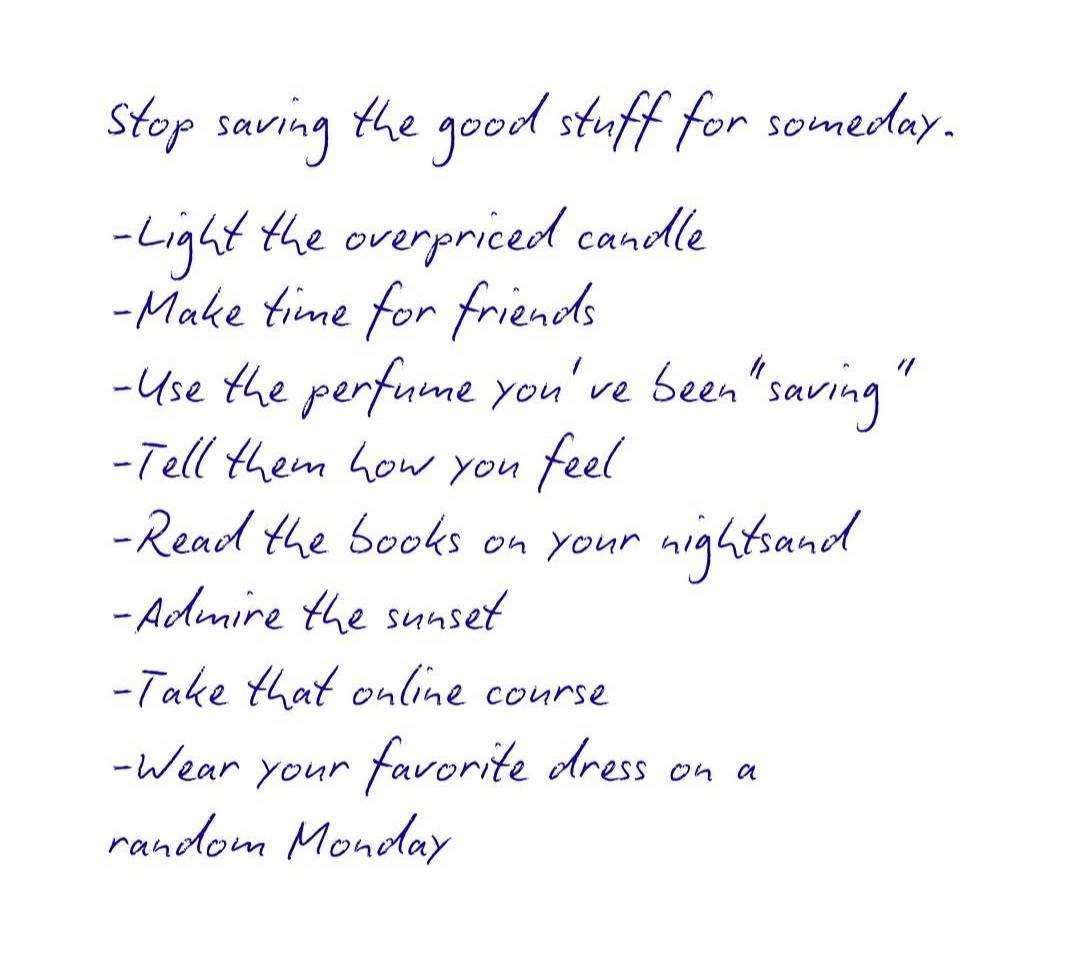 Stop saving the good stuff for someday.
-Light the overpriced candle
-Make time for friends
-Use the perfume you've been "saving"
-Tell them how you feel
-Read the books on your nightsand
-Admire the sunset
-Take that online course
-Wear your favorite dress on a
random Monday